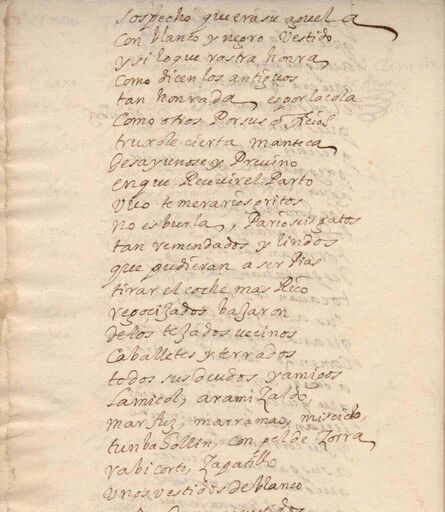 sospecho que era su aguela
con blanco y negro vestido
y si lo que rastra honra
como dicen los antiguos
tan honrada es por la cola
como otros Por sus oficios
truxole cierta manteca
desayunose y Previno
en que Recevir el Parto
uvo temerarios gritos
no es burla, Pario seis gatos
tan remendados y lindos
que pudieran a ser Pias
tirar el coche mas Rico
regocizados bazaron
de los tezados vecinos
caballetes y terrados
todos sus deudos y amigos
lamicol, arami Zaldo
marfuz, marramao, miscielo,
tunba ollin, con pel de Zorra
rabicorto, Zapatillo
unos vestidos de blanco